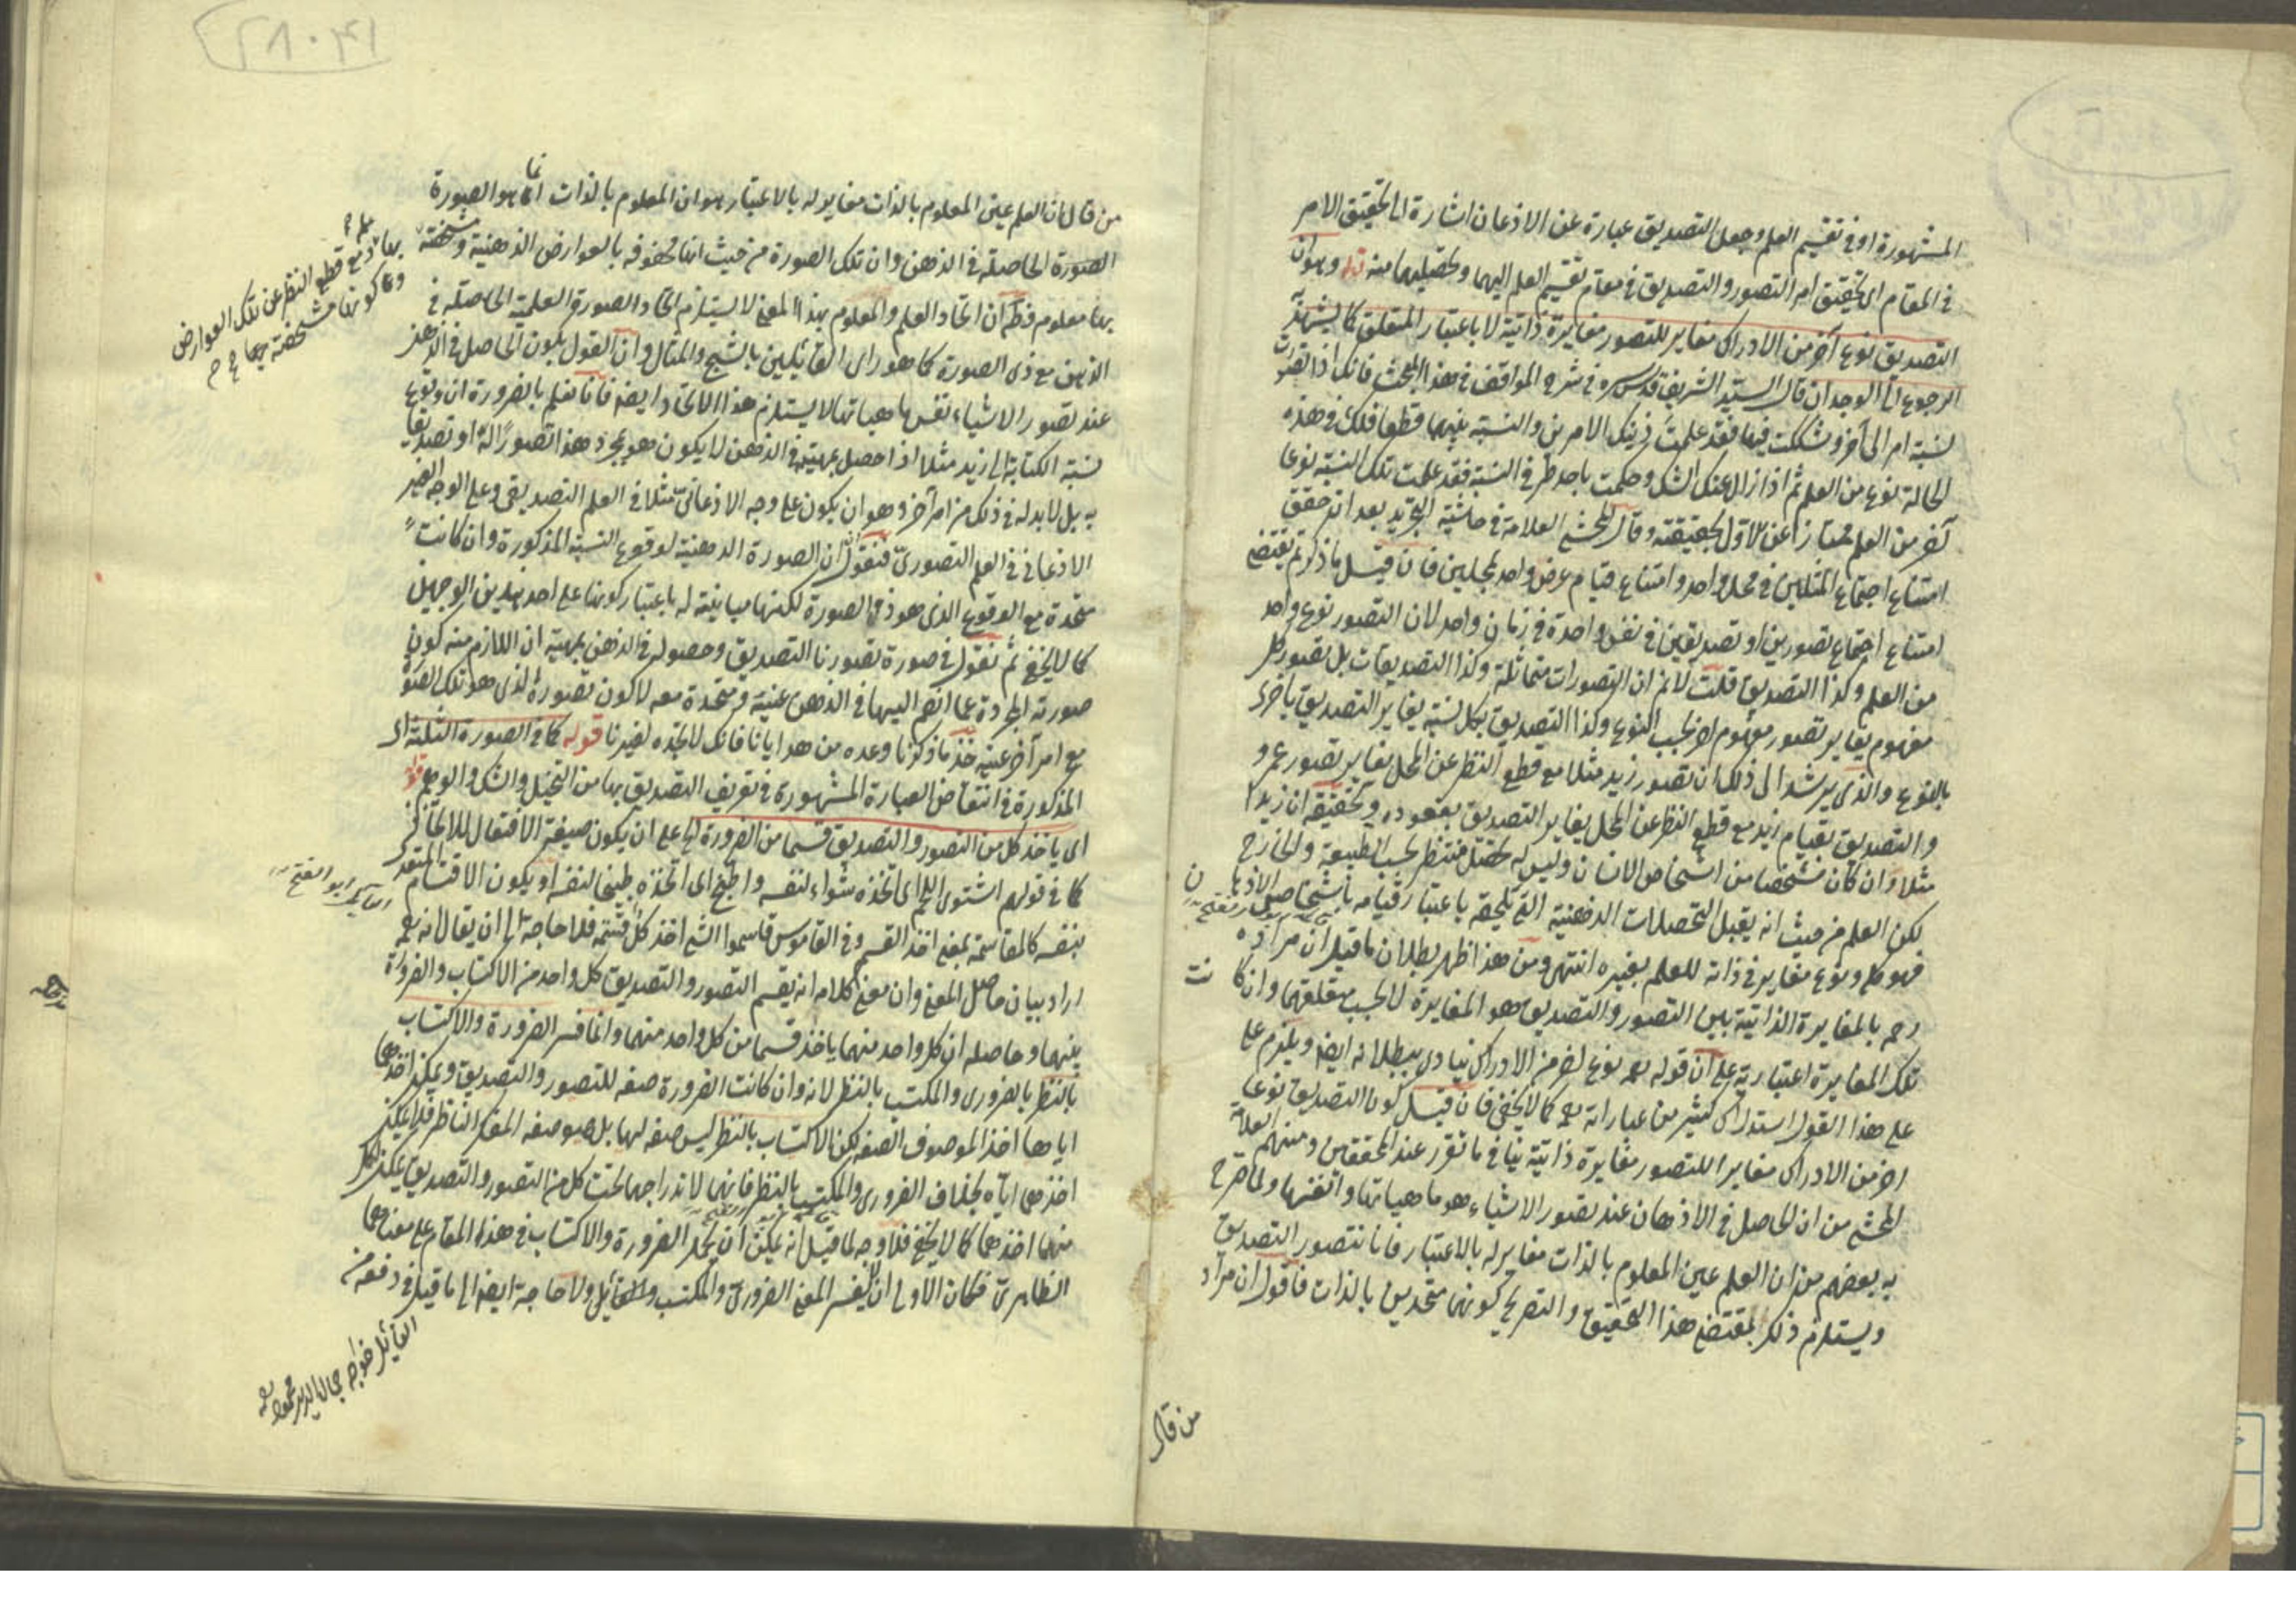 المشهورة او في تقسيم العلم وجعل التصديق عبارة عن الاذعان اشارة الى تحقيق الامر
في المقام اى تحقيق امر التصور والتصديق في مقام تقسيم العلم اليهما وتحصيلهما منه قوله وهو ان
التصديق نوع آخر من الادراك مغاير للتصور مغايرة ذاتية لا باعتبار المتعلق كما يشهد به
الرجوع الى الوجدان قال السيد الشريف قدس سره في شرح المواقف في هذا المبحث فانك اذا تصورت
نسبة امر الى آخر وشككت فيها فقد علمت ذينك الامرين والنسبة بينهما قطعا فلك في هذه
الحالة نوع من العلم ثم اذا زال عنك الشك وحكمت باحد طرفى النسبة فقد علمت تلك النسبة نوعا
آخر من العلم ممتازا عن الاول بحقيقته وقال المحشى العلامة في حاشية التجريد بعد ان حقق
امتناع اجتماع المثلين في محل واحد وامتناع قيام عرض واحد بمحلين فان قيل ما ذكرتم يقتضى
امتناع اجتماع تصورين او تصديقين في نفس واحدة في زمان واحد لان التصور نوع واحد
من العلم وكذا التصديق قلت لا نم ان التصورات متماثلة وكذا التصديقات بل تصور كل
مفهوم يغاير تصور مفهوم اخر بحسب النوع وكذا التصديق بكل نسبة يغاير التصديق باخرى
بالنوع والذى يرشد الى ذلك ان تصور زيد مثلا مع قطع النظر عن المحل يغاير تصور عمرو
والتصديق بقيام زيد مع قطع النظر عن المحل يغاير التصديق بقعوده وتحقيقه ان زيدا
مثلا وان كان شخصا من اشخاص الانسان وليس له تحصل منتظر بحسب الطبيعة والخارج
لكن العلم من حيث انه يقبل التحصلات الذهنية التى تلحقه باعتبار قيامه باشخاص الاذهان
فهو كلى ونوع مغاير في ذاته للعلم بغيره انتهى ومن هذا ظهر بطلان ما قيل ان مراده
رحمه بالمغايرة الذاتية بين التصور والتصديق هو المغايرة لا بحسب متعلقهما وان كانت
تلك المغايرة اعتبارية على ان قوله نوع اخر من الادراك ينادى ببطلانه ايضا ويلزم على
على هذا القول استدراك كثير من عباراته كما لا يخفى فان قيل كون التصديق نوعا
اخر من الادراك مغايرا للتصور مغايرة ذاتية ينافى ما تقرر عند المحققين ومنهم العلامة
المحشى من ان الحاصل في الاذهان عند تصور الاشياء هو ماهياتها وانفسها ولما صرح
به بعضهم من ان العلم عين المعلوم بالذات مغاير له بالاعتبار فانا نتصور التصديق
ويستلزم ذلك بمقتضى هذا التحقيق والتصريح كونهما متحدين بالذات فاقول ان مراد
من قال
من قال ان العلم عين المعلوم بالذات مغاير له بالاعتبار هو ان المعلوم بالذات انما هو الصورة
الصورة الحاصلة في الذهن وان تلك الصورة من حيث انها محفوفة بالعوارض الذهنية ومشخصة
بها علم ومع قطع النظر عن تلك العوارض
وعن كونها مشخصة بها
بها معلوم فظهر ان اتحاد العلم والمعلوم بهذا المعنى لا يستلزم اتحاد الصورة العلمية الحاصلة في
الذهن مع ذى الصورة كما هو راى القائلين بالشبح والمثال وان القول بكون الحاصل في الذهن
عند تصور الاشياء نفس ماهياتها لا يستلزم هذا الاتحاد ايضا فانا نعلم بالضرورة ان وقوع
نسبة الكتابة الى زيد مثلا اذا حصل بمهيته في الذهن لا يكون هو بمجرد هذا تصورا له او تصديقا
به بل لابد له في ذلك من امر آخر وهو ان يكون على وجه الاذعانى مثلا في العلم التصديقى وعلى الوجه الغير
الاذعانى في العلم التصورى فنقول ان الصورة الذهنية لوقوع النسبة المذكورة وان كانت
متحدة مع الوقوع الذى هو ذو الصورة لكنها مباينة له باعتبار كونها على احد هذين الوجهين
كما لا يخفى ثم نقول في صورة تصورنا التصديق وحصوله في الذهن بمهيته ان اللازم منه كون
صورته المجردة عما انضم اليها في الذهن عينه ومتحدة معه لا كون تصوره الذى هو تلك الصورة
مع امر آخر عينه خذ ما ذكرنا وعده من هدايانا فانك لا تجده لغيرنا قوله كما في الصورة الثلثة اى
المذكورة في انتقاض العبارة المشهورة في تعريف التصديق بها من التخيل والشك والوهم قوله
اى ياخذ كل من التصور والتصديق قسما من الضرورة الخ على ان يكون صيغة الافتعال للاتخاذ
كما في قولهم اشتوى اللحم اى اتخذه شواء لنفسه واطبخ اى اتخذه طبيخا لنفسه او يكون الاقتسام المتعدى
بنفسه كالمقاسمة بمعنى اخذ القسم وفي القاموس قاسموا الشئ اخذ كل قسمه فلا حاجة الى ان يقال انه
اراد بيان حاصل المعنى وان معنى كلامه انه يقسم التصور والتصديق كل واحد من الاكتساب والضرورة
بينهما وحاصله ان كل واحد منهما ياخذ قسما من كل واحد منهما وانما فسر الضرورة والاكتساب
بالنظر بالضرورى والمكتسب بالنظر لانه وان كانت الضرورة صفة للتصور والتصديق ويمكن اخذهما
اياها اخذ الموصوف الصفة لكن الاكتساب بالنظر ليس صفة لهما بل هو صفة المفكر الناظر فلا يمكن
اخذهما اياه بخلاف الضرورى والمكتسب بالنظر فانهما لاندراجهما تحت كل من التصور والتصديق يمكن لكل
منهما اخذهما كما لا يخفى فلا وجه لما قيل انه يمكن ان يحمل الضرورة والاكتساب في هذا المقام على معناهما
الظاهرى فكان الاولى ان يفسر المعنى الضرورى والمكتسب ولا حاجة ايضا الى ما قيل في دفعه من
القائل خواجه جمال الدين محمود